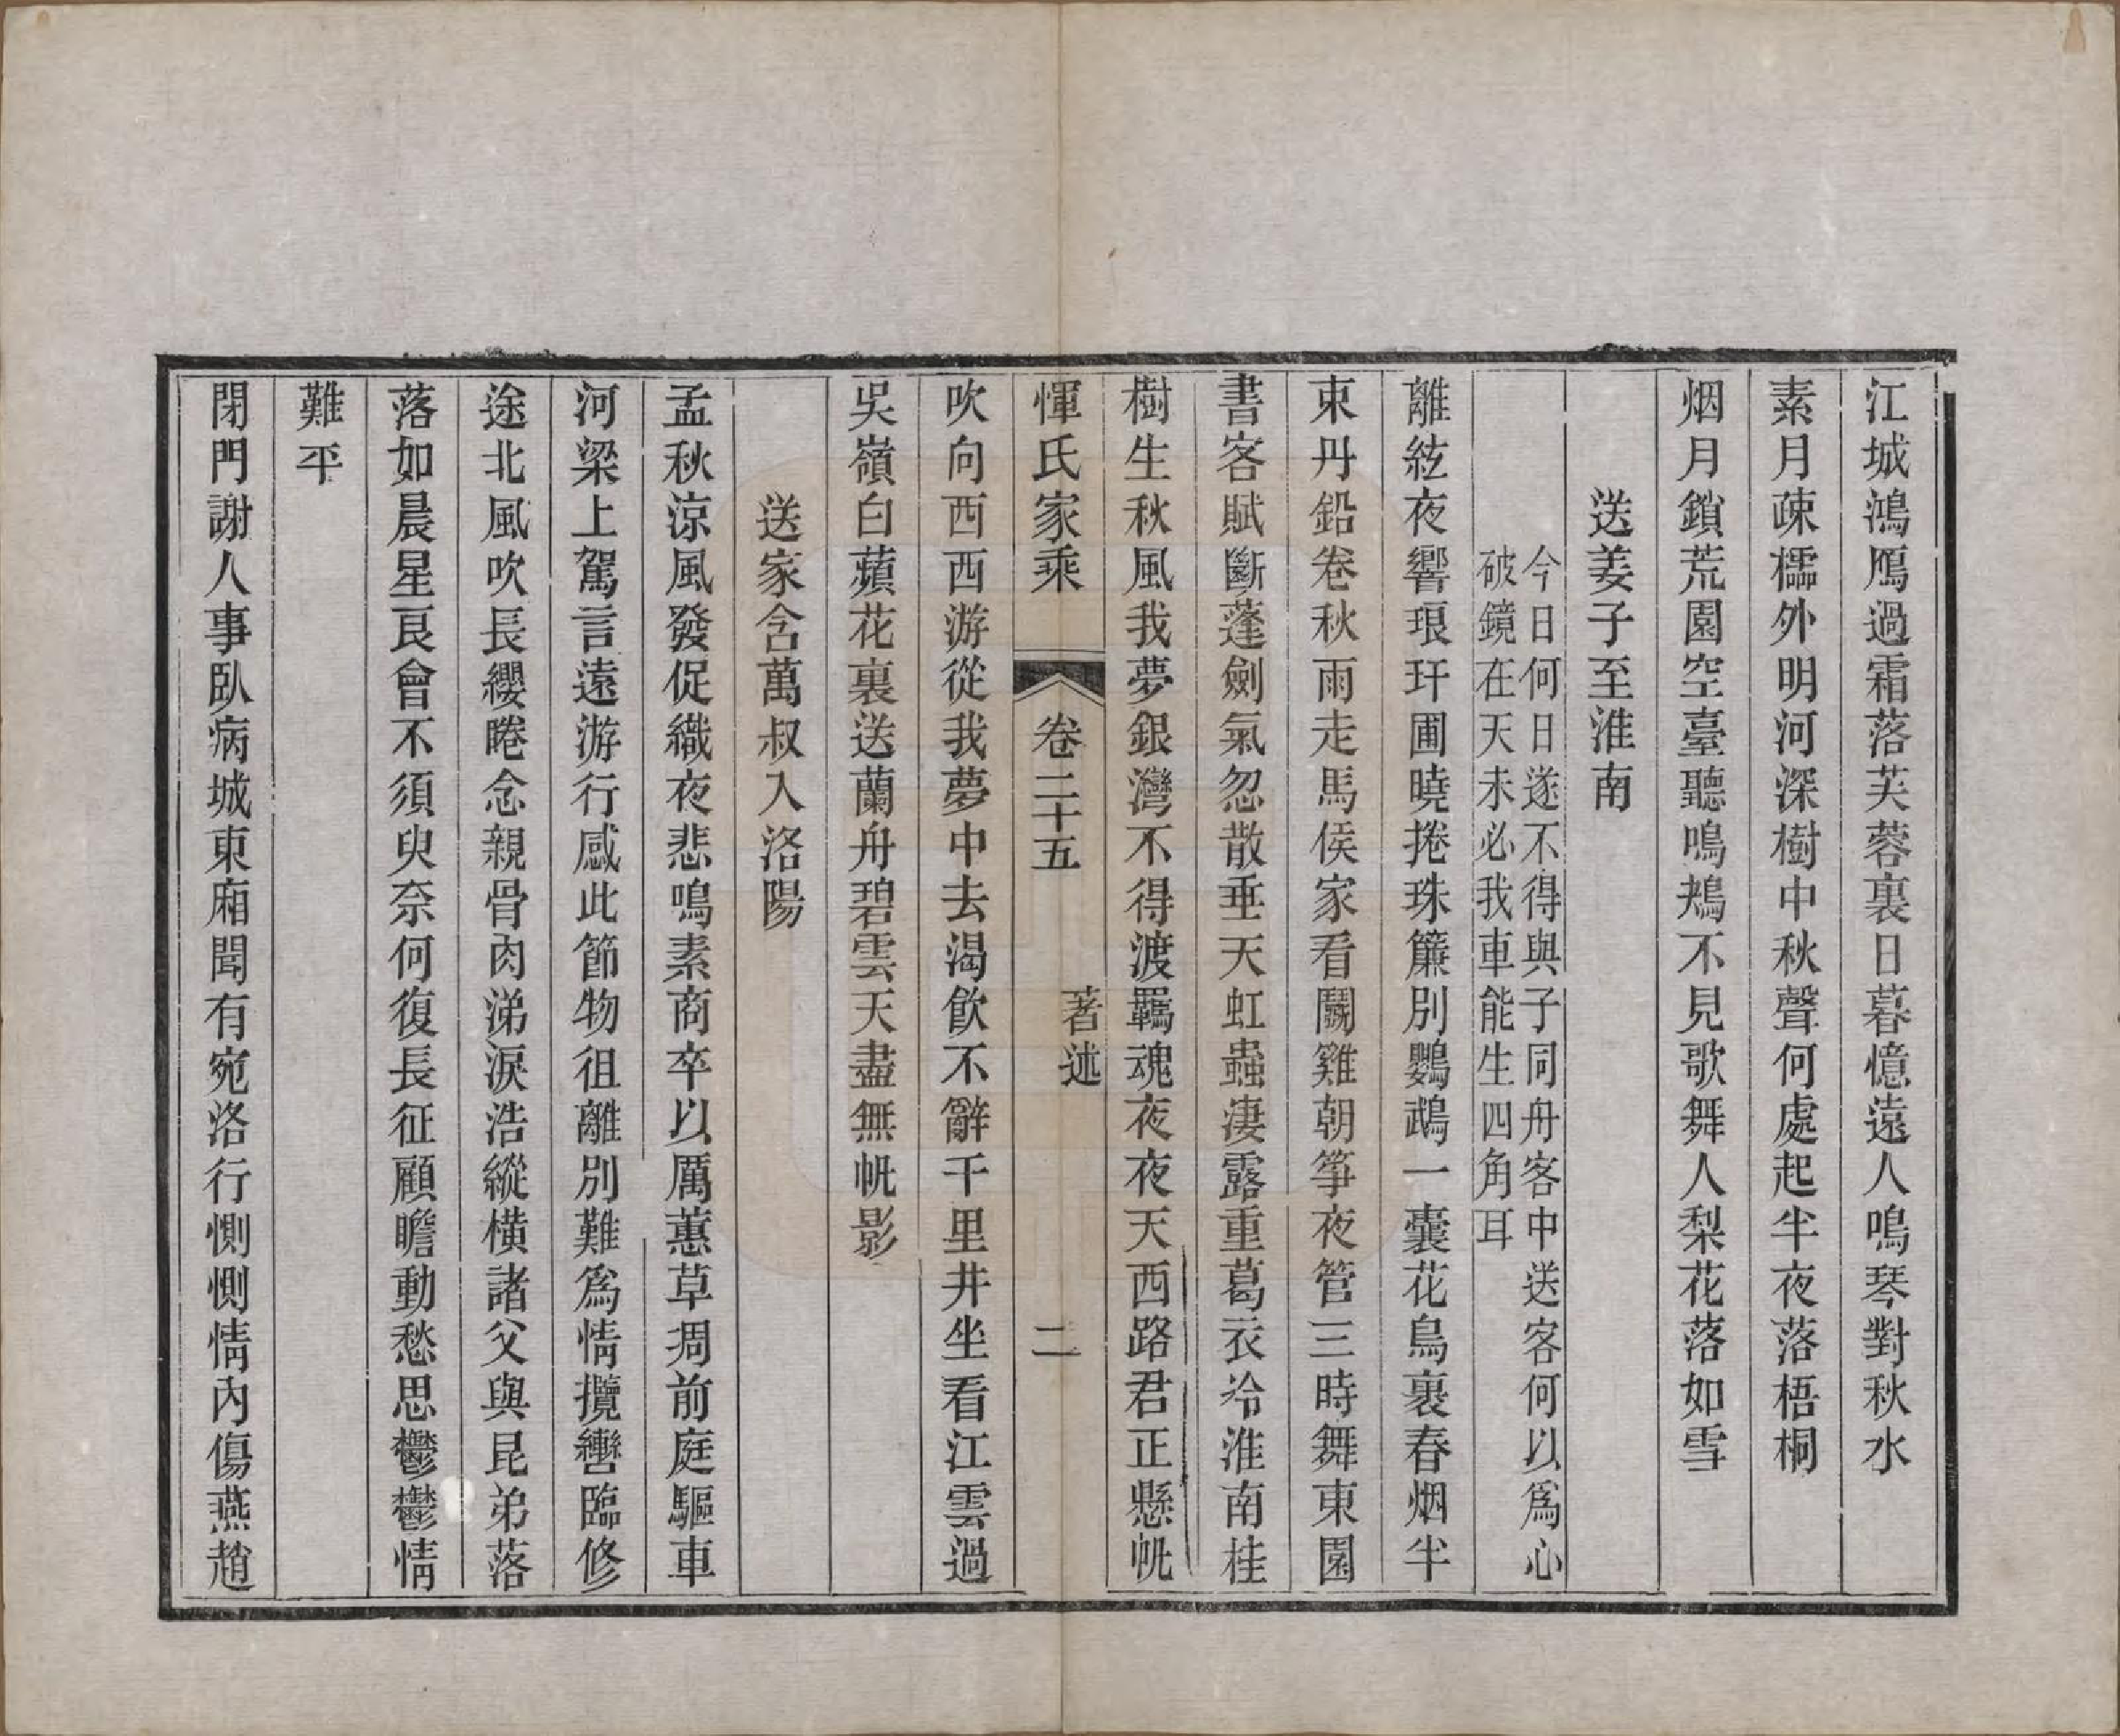 江城鴻鴈過霜落芙蓉裏日暮憶遠人鳴琴對秋水
素月疎櫺外明河深樹中秋聲何處起半夜落梧桐
烟月鎖荒園空臺聽鳴鴂不見歌舞人梨花落如雪
送姜子至淮南
今日何日遂不得與子同舟客中送客何以為心
破鏡在天未必我車能生四角耳
離絃夜響琅玕圃曉捲珠簾別鸚鵡一囊花烏裏春烟半
束丹鉛卷秋雨走馬侯家看鬭雞朝箏夜管三時舞東園
書客賦斷蓬劍氣忽散垂天虹蟲淒露重葛衣冷淮南桂
樹生秋風我夢銀灣不得渡羈魂夜夜天西路君正懸帆
惲氏家乘 卷二十五 著述 二
吹向西西游從我夢中去渴飲不辭千里井坐看江雲過
吳嶺白蘋花裏送蘭舟碧雲天盡無帆影
送家含萬叔入洛陽
孟秋涼風發促織夜悲鳴素商卒以厲蕙草凋前庭驅車
河梁上駕言遠游行感此節物徂離別難為情攬轡臨修
途北風吹長纓睠念親骨肉涕淚浩縱橫諸父與昆弟落
落如晨星良會不須臾奈何復長征顧瞻動愁思鬱鬱情
難平
閉門謝人事臥病城東廂聞有宛洛行惻惻情內傷燕趙